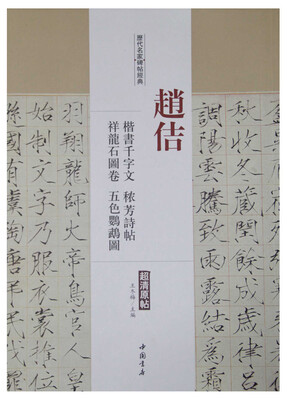 歷代名家碑帖經典
趙佶
楷書千字文 穠芳詩帖
祥龍石圖卷 五色鸚鵡圖
超清原帖
王冬梅/主編
中國書店
秋收冬藏閏餘成歲
調陽雲騰致雨露結為霜
羽翔龍師火帝鳥官人皇
始制文字乃服衣裳推位